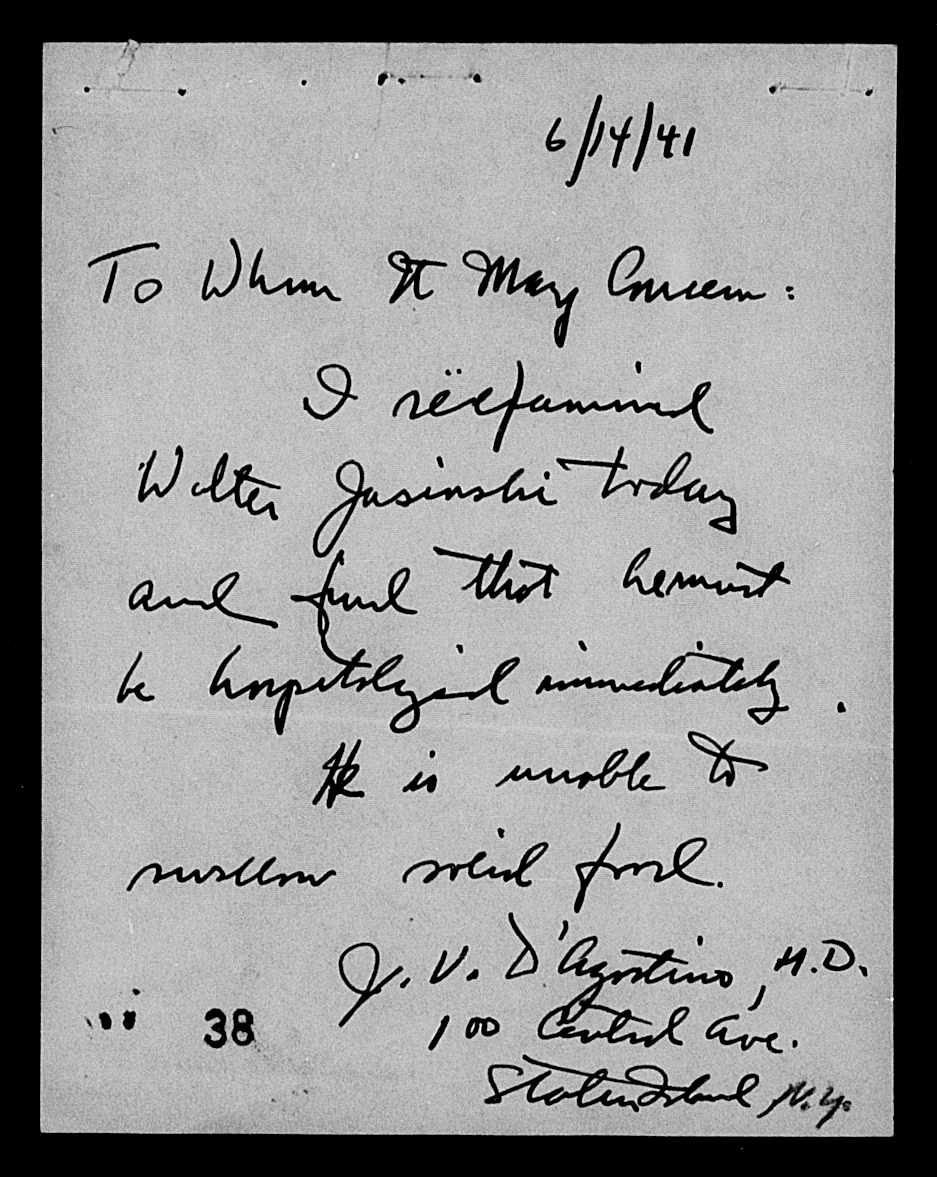 6/14/41
To Whom It May Concern:
I reëxamined
Walter Jasinski today
and find that he must
be hospitalized immediately.
He is unable to
swallow solid food.
J. V. D'Agostino, M.D.
100 Central Ave.
Staten Island N.Y.
38